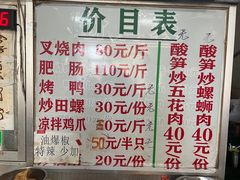 价目表
叉烧肉 80元/斤
肥肠 110元/斤
烤鸭 30元/斤
炒田螺 30元/份
凉拌鸡爪 60元/斤
油爆椒 50元/半只
特辣 少加 20元/份
酸笋炒五花肉 40元/份
酸笋炒螺蛳肉 40元/份